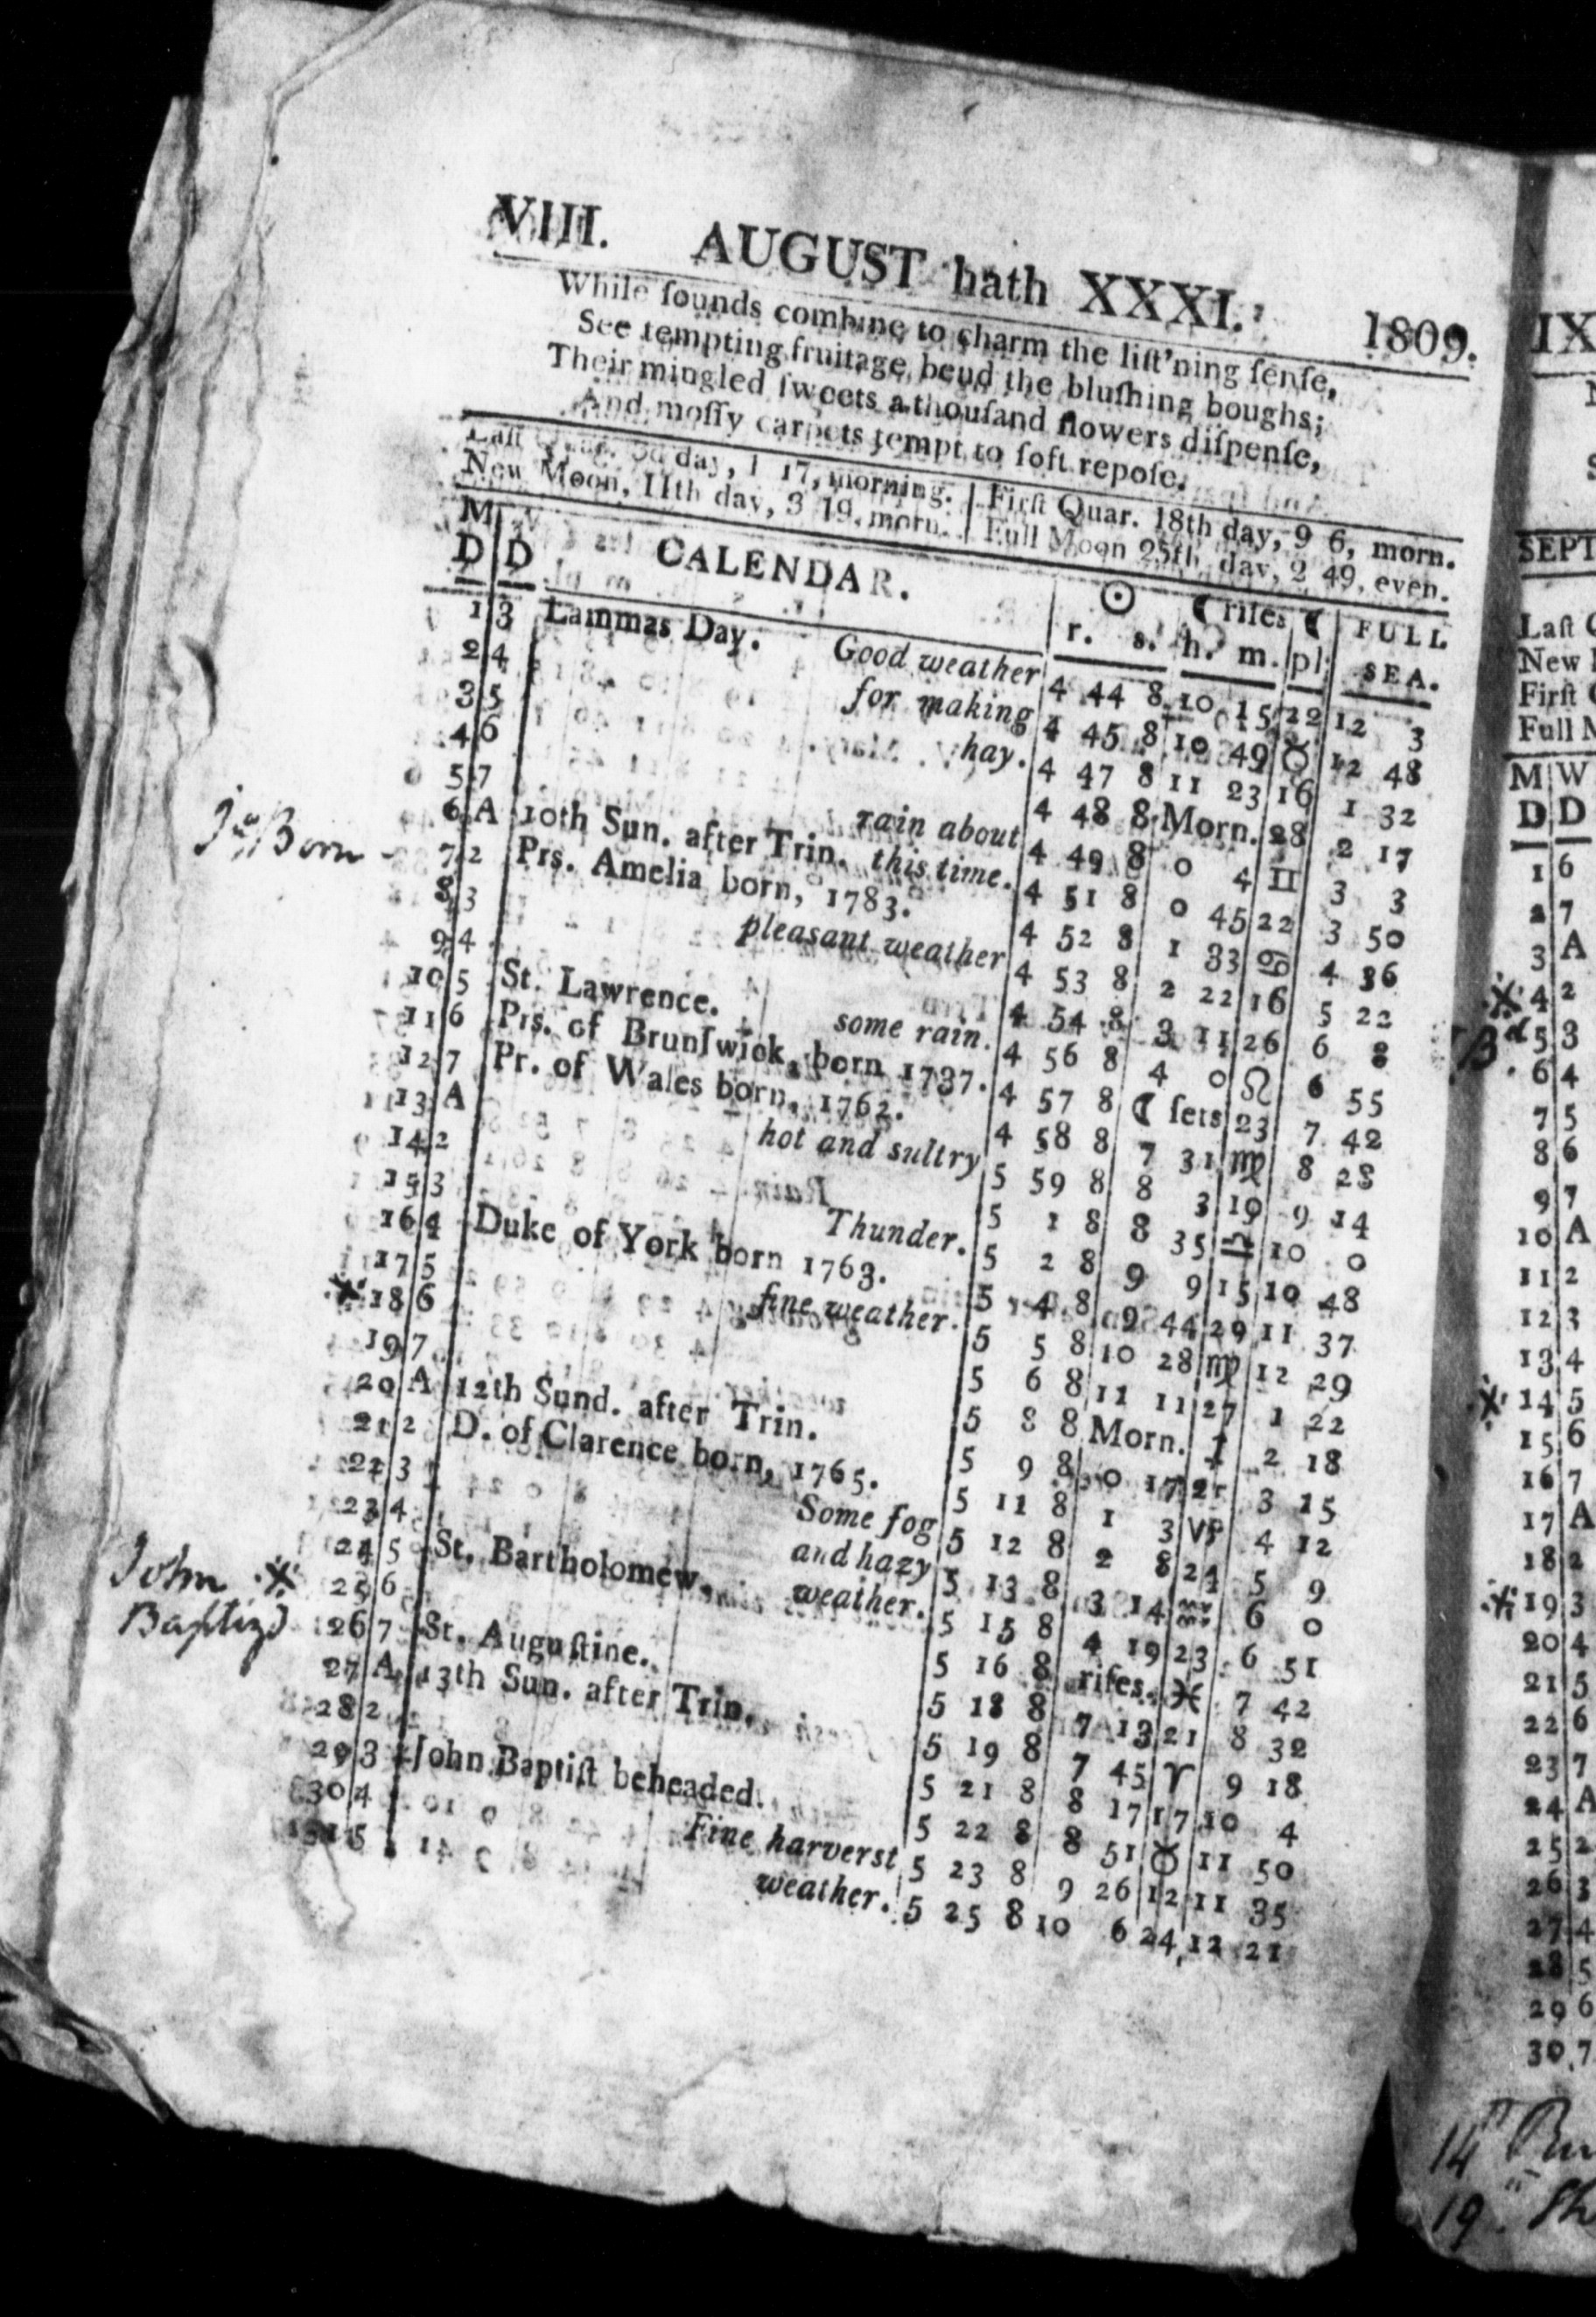 VIII. AUGUST hath XXXI. 1809.
While ſounds combine to charm the liſt'ning ſenſe,
See tempting fruitage bend the bluſhing boughs;
Their mingled ſweets a thouſand flowers diſpenſe,
And moſſy carpets tempt to ſoft repoſe.
Laſt Quar. 3d day, 1 17, morning. First Quar. 18th day, 9 6, morn.
New Moon, 11th day, 3 19, morn. Full Moon 25th day, 2 49, even.
M W CALENDAR. ☉ ☾ riſes ☾ FULL
D D r. s. h. m. pl. SEA.
1 3 Lammas Day. Good weather 4 44 8 10 15 22 12 3
2 4 for making 4 45 8 10 49 ♉ 12 48
3 5 hay. 4 47 8 11 23 16 1 32
4 6 4 48 8 Morn. 28 2 17
5 7 rain about 4 49 8 0 4 ♊ 3 3
6 A 10th Sun. after Trin. this time. 4 51 8 0 45 22 3 50
Born
7 2 Prs. Amelia born, 1783. 4 52 8 1 33 ♋ 4 36
8 3 pleasant weather 4 53 8 2 22 16 5 22
9 4 4 54 8 3 11 26 6 8
10 5 St. Lawrence. some rain. 4 56 8 4 0 ♌ 6 55
11 6 Prs. of Brunſwick, born 1737. 4 57 8 ☾ ſets 23 7 42
12 7 Pr. of Wales born, 1762. 4 58 8 7 31 ♍ 8 28
13 A hot and sultry 5 59 8 8 3 19 9 14
14 2 5 1 8 8 35 ♎ 10 0
15 3 Thunder. 5 2 8 9 9 15 10 48
16 4 Duke of York born 1763. 5 4 8 9 44 29 11 37
17 5 fine weather. 5 5 8 10 28 ♍ 12 29
※ 18 6 5 6 8 11 11 27 1 22
19 7 5 8 8 Morn. ♐ 2 18
20 A 12th Sund. after Trin. 5 9 8 0 17 21 3 15
21 2 D. of Clarence born, 1765. 5 11 8 1 3 ♑ 4 12
22 3 Some fog 5 12 8 2 8 24 5 9
23 4 and hazy 5 13 8 3 14 ♒ 6 0
24 5 St. Bartholomew. weather. 5 15 8 4 19 23 6 51
John ※ 25 6 5 16 8 riſes. ♓ 7 42
Baptizd 26 7 St. Auguſtine. 5 18 8 7 13 21 8 32
27 A 13th Sun. after Trin. 5 19 8 7 45 ♈ 9 18
28 2 5 21 8 8 17 17 10 4
29 3 John Baptiſt beheaded. 5 22 8 8 51 ♉ 11 50
30 4 Fine harverst 5 23 8 9 26 12 11 35
31 5 weather. 5 25 8 10 6 24 12 21
IX
SEPT
Laſt
New
Firſt
Full
M W
D D
1 6
2 7
3 A
※ 4 2
Bd 5 3
6 4
7 5
8 6
9 7
10 A
11 2
12 3
13 4
※ 14 5
15 6
16 7
17 A
18 2
※ 19 3
20 4
21 5
22 6
23 7
24 A
25 2
26 3
27 4
28 5
29 6
30 7
14
19